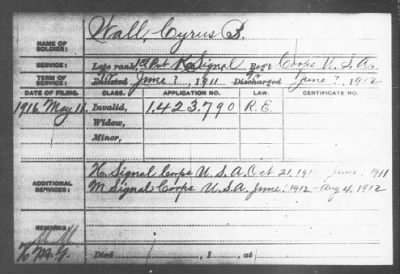 Wall, Cyrus B.
NAME OF SOLDIER:
SERVICE: Late rank, Signal Reg't Corps U. S. A.
TERM OF SERVICE: Enlisted June ?, 1911 Discharged June ?, 1912
DATE OF FILING. CLASS. APPLICATION NO. LAW. CERTIFICATE NO.
1916 May Invalid, 1,423,790 R.E.
Widow,
Minor,
Signal Corps U. S. A. Oct 21, June 1911
ADDITIONAL SERVICES: M Signal Corps U.S.A. June 1912 - Aug 4, 1912
REMARKS:
Died , 1 , at